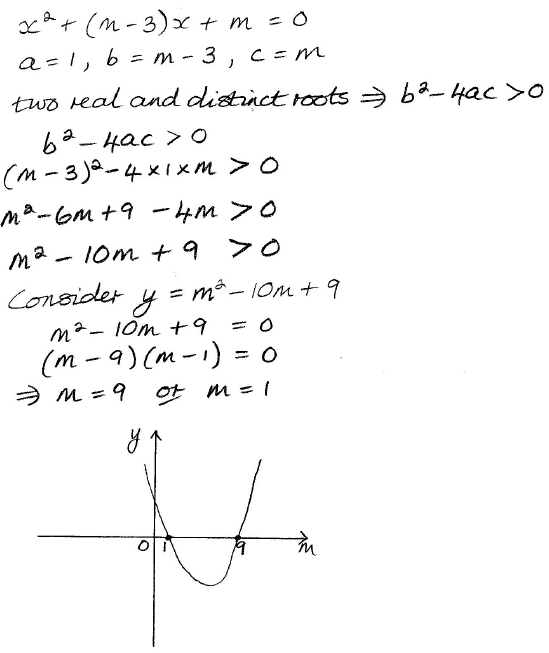 x² + (m - 3)x + m = 0
a = 1, b = m - 3, c = m
two real and distinct roots ⇒ b² - 4ac > 0
b² - 4ac > 0
(m - 3)² - 4 × 1 × m > 0
m² - 6m + 9 - 4m > 0
m² - 10m + 9 > 0
Consider y = m² - 10m + 9
m² - 10m + 9 = 0
(m - 9)(m - 1) = 0
⇒ m = 9 or m = 1
y
0 1 9 m